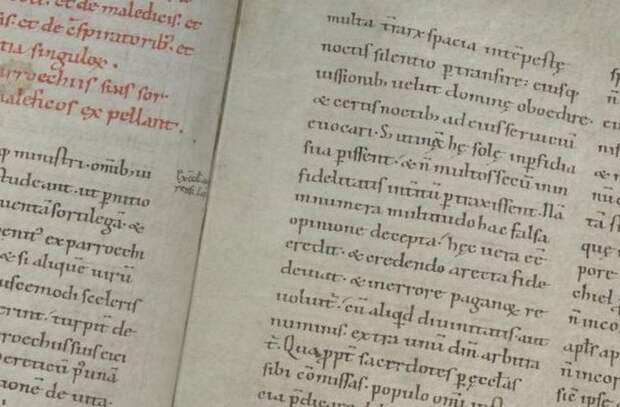 et de maledicis. et
et de c̄spiratorib; et
tia singuloꝝ.
arroechiis suis sor
maleficos ex pellant.
ministri. omīb; ui
stude ant. ut pernitio
uentā sortilegā. &
ex parroechi
& si aliquē uirū
usce modi sceleris
erint. turpit̄ de
rroechiis suis eici
hereticū p̄ unā
tionē de uita
multa t̄raꝝ spacia intēpestę
noctis silentio ꝑtransire: eiusq;
iussionib; uelut dominę oboedire.
& certis noctib; ad eius seruiciū
euocari. S; utinā hę solę in ꝑfidia
sua ꝑissent. & n̄ multos secū in in
fidelitatis int̄itū ꝑtraxissent. Nā
innumera multitudo hac falsa
opinione decepta. hęc uera eē
credit. & credendo a recta fide
deuiat. & in errore paganoꝝ re
uoluit̄. cū aliqd diuinitatis. aut
numinis. extra unū dm̄ arbitra
t̄. Qua ꝓpt̄ sacerdotes ꝑ ęcclas
sibi cōmissas. populo omi
cia p̄dicare
tā
quę
pore
chiel
n̄ inco
apls̄ ap
n̄ incor
siē ipse